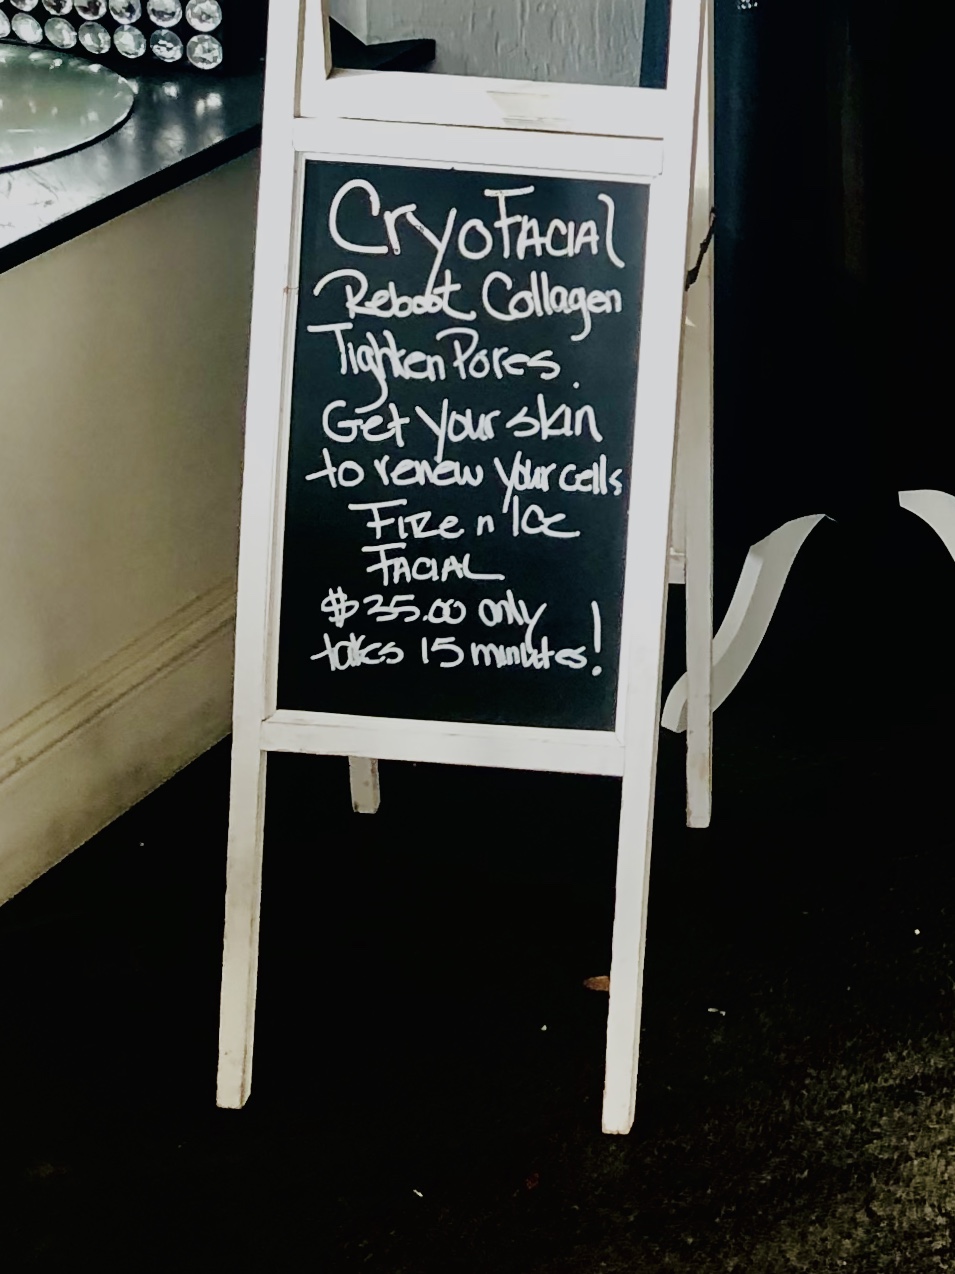 CryoFacial
Reboot Collagen
Tighten Pores.
Get your skin
to renew your cells
Fire n Ice
Facial
$35.00 only
takes 15 minutes!